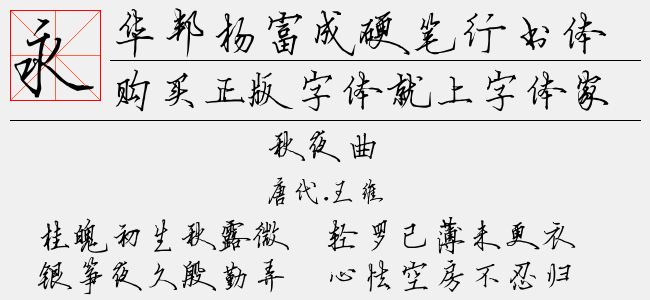 永
华邦杨富成硬笔行书体
购买正版字体就上字体家
秋夜曲
唐代.王维
桂魄初生秋露微 轻罗已薄未更衣
银筝夜久殷勤弄 心怯空房不忍归